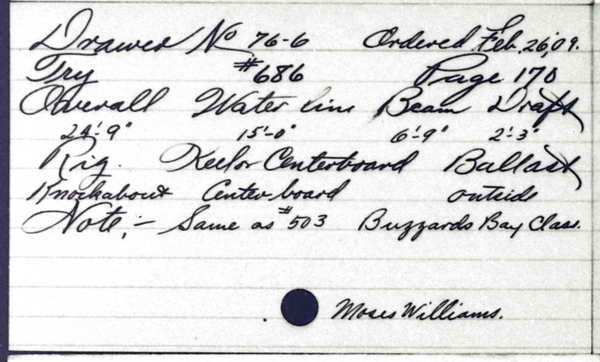 Drawer No 76-6 Ordered Feb. 26, '09.
Try #686 Page 170
Overall Water line Beam Draft
24'-9" 15'-0" 6'-9" 2'-3"
Rig. Keel or Centerboard Ballast
Knockabout Center board outside
Note:- Same as #503 Buzzards Bay Class.
Moses Williams.